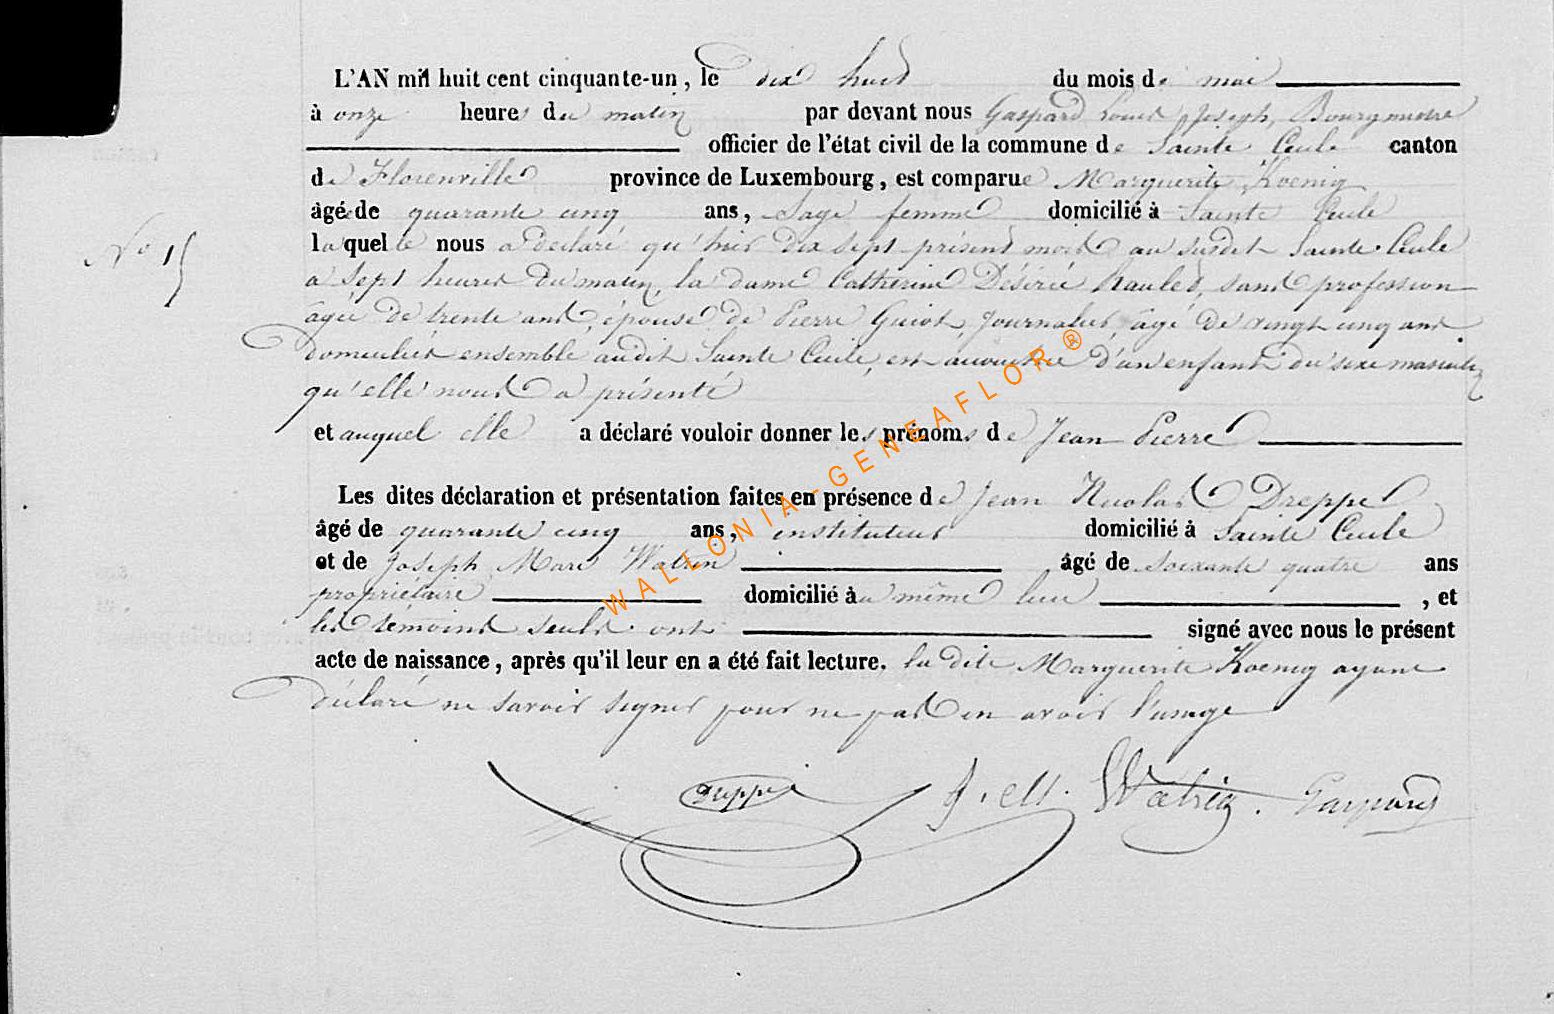 L'AN mil huit cent cinquante-un, le dix huit du mois de mai
à onze heures du matin par devant nous Gaspard Louis Joseph, Bourgmestre
officier de l'état civil de la commune de Sainte Cecile canton
de Florenville province de Luxembourg, est comparue Marguerite Koenig
âgée de quarante cinq ans, Sage femme domicilié à Sainte Cecile
laquelle nous a déclaré qu'hier dix sept présent mois au susdit Sainte Cecile
N° 15
a sept heures du matin, la dame Catherine Désirée Naulet, sans profession
âgée de trente ans, épouse de Pierre Guiot, Journalier, âgé de vingt cinq ans
domiciliés ensemble audit Sainte Cecile, est accouchée d'un enfant du sexe masculin
qu'elle nous a présenté
et auquel elle a déclaré vouloir donner les prénoms de Jean Pierre
Les dites déclaration et présentation faites en présence de Jean Nicolas Dreppe
âgé de quarante cinq ans, instituteur domicilié à Sainte Cecile
et de Joseph Marc Watrin âgé de soixante quatre ans
propriétaire domicilié au même lieu, et
les témoins seuls ont signé avec nous le présent
acte de naissance, après qu'il leur en a été fait lecture. la dite Marguerite Koenig ayant
déclaré ne savoir signer pour ne pas en avoir l'usage
Dreppe J. M. Watrin. Gaspard
WALLONIA-GENEAFLOR ®